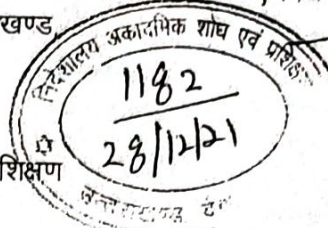 खण्ड
निदेशालय अकादमिक शोध एवं प्रशिक्षण
1182
28/12/21
शिक्षण
उत्तराखण्ड